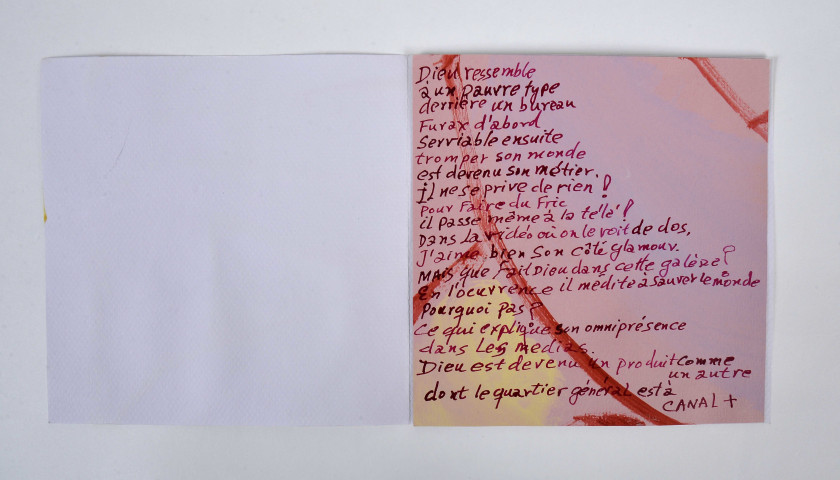 Dieu ressemble
à un pauvre type
derrière un bureau
Furax d'abord
Serviable ensuite
tromper son monde
est devenu son métier.
il ne se prive de rien !
pour Faire du Fric
il passe même à la télé !
Dans la vidéo où on le voit de dos,
J'aime bien Son côté glamour.
MAis que fait Dieu dans cette galère ?
En l'ocurrence il médite à sauver le monde
Pourquoi pas ?
Ce qui explique son omniprésence
dans Les medias.
Dieu est devenu un produit comme
un autre
dont le quartier général est à
CANAL +